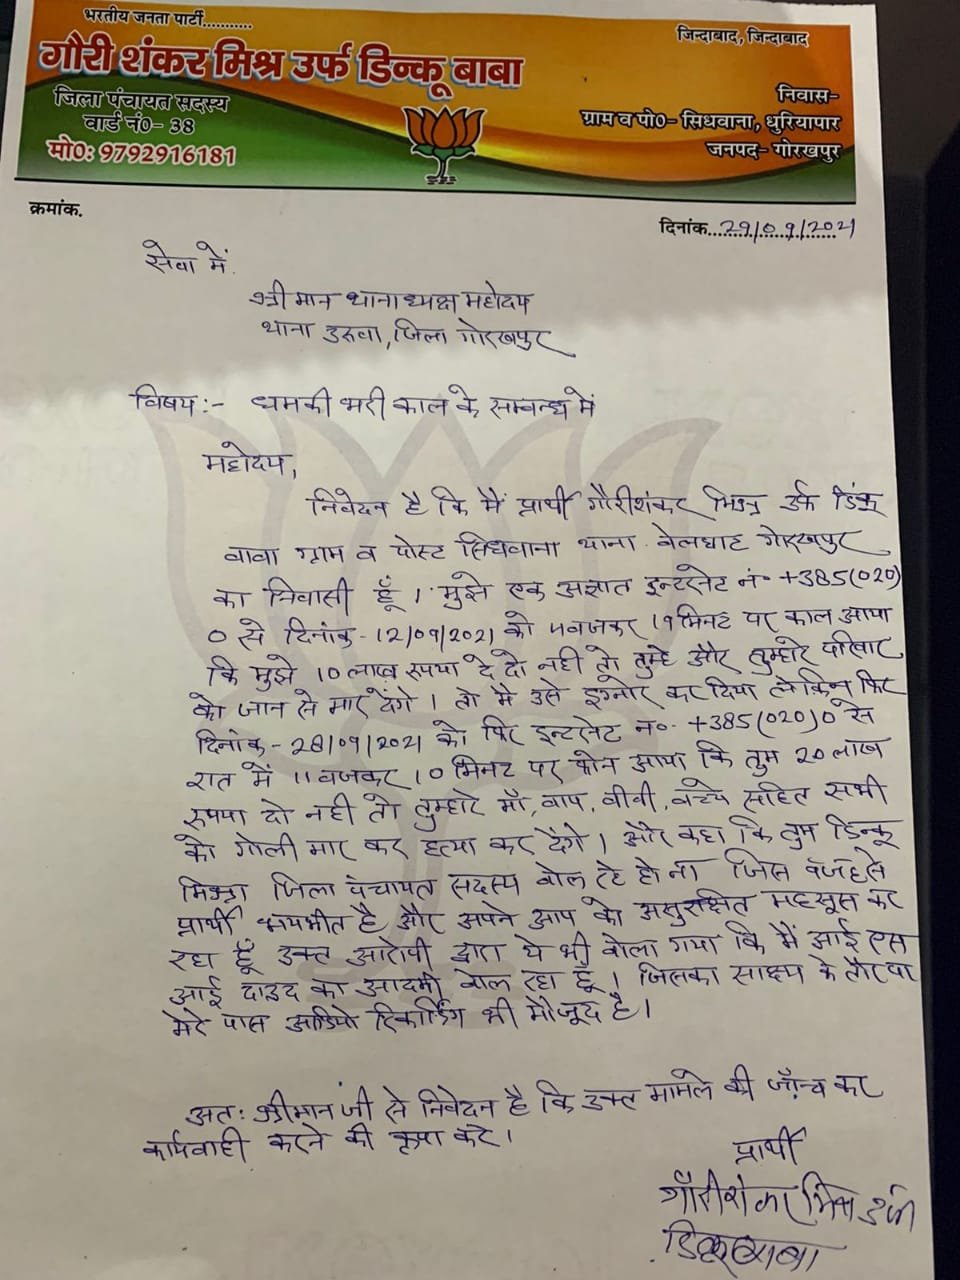 भारतीय जनता पार्टी...........
जिन्दाबाद, जिन्दाबाद
गौरी शंकर मिश्र उर्फ डिन्कू बाबा
जिला पंचायत सदस्य
वार्ड नं0- 38
मो0: 9792916181
निवास-
ग्राम व पो0- सिधवाना, धुरियापार
जनपद- गोरखपुर
क्रमांक.
दिनांक...29/09/2021
सेवा में
श्रीमान थानाध्यक्ष महोदय
थाना उरुवा, जिला गोरखपुर
विषय:- धमकी भरी काल के सम्बन्ध में
महोदय,
निवेदन है कि मैं प्रार्थी गौरीशंकर मिश्र उर्फ डिंकू
बाबा ग्राम व पोस्ट सिधवाना थाना बेलघाट गोरखपुर
का निवासी हूँ। मुझे एक अज्ञात इन्टरनेट नं० +385(020)
0 से दिनांक-12/09/2021 को 4बजकर 19मिनट पर काल आया
कि मुझे 10 लाख रुपया दे दो नही तो तुम्हे और तुम्हारे परिवार
को जान से मार देंगे। तो मै उसे इग्नोर कर दिया लेकिन फिर
दिनांक-28/09/2021 को फिर इन्टरनेट न०- +385(020)0 से
रात में 11बजकर 10मिनट पर फोन आया कि तुम 20 लाख
रुपया दो नही तो तुम्हारे माँ, बाप, बीबी, बच्चे सहित सभी
को गोली मार कर हत्या कर देंगे। और कहा कि तुम डिन्कू
मिश्रा जिला पंचायत सदस्य बोल रहे हो ना जिस वजह से
प्रार्थी भयभीत है और अपने आप को असुरक्षित महसूस कर
रहा हूँ उक्त आरोपी द्वारा ये भी बोला गया कि मैं आई एस
आई दाउद का आदमी बोल रहा हूँ। जिसका साक्ष्य के तौर पर
मेरे पास आडियो रिकार्डिंग भी मौजूद है।
अतः श्रीमान जी से निवेदन है कि उक्त मामले की जाँच कर
कार्यवाही करने की कृपा करें।
प्रार्थी
गौरीशंकर मिश्र उर्फ
डिंकू बाबा